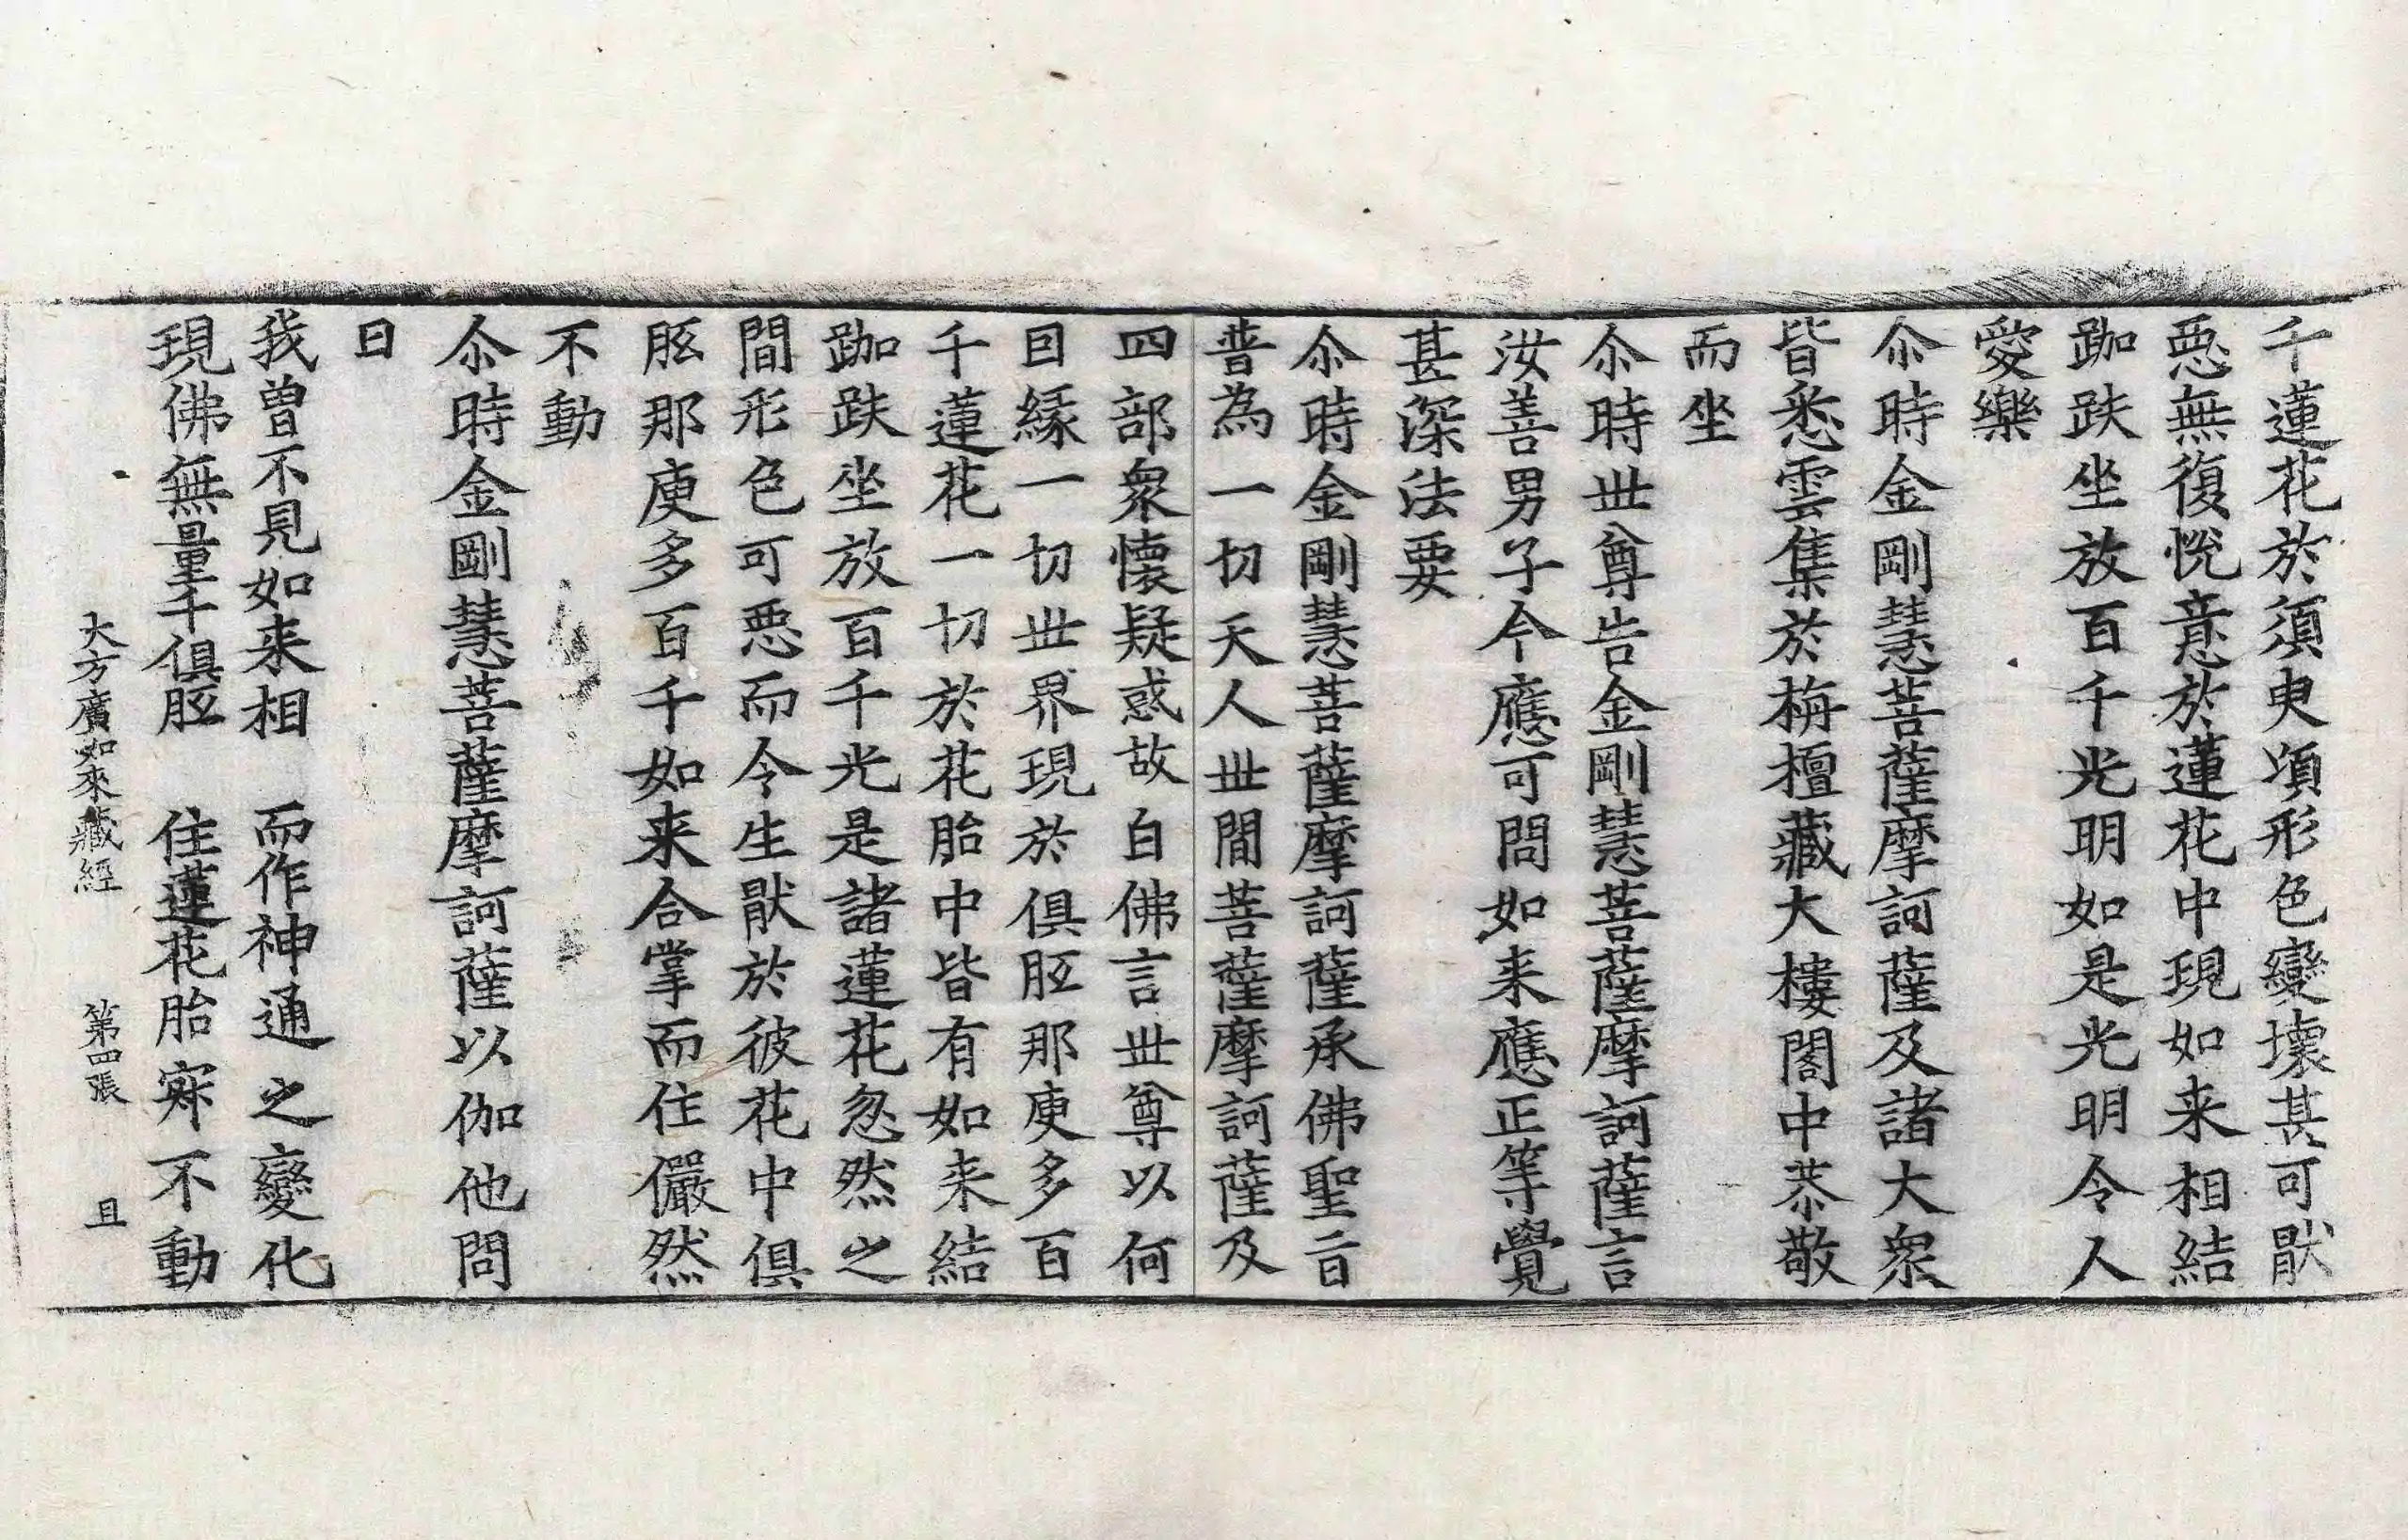 千蓮花於須臾頃形色變壞甚可猒
惡無復恱意於蓮花中現如来相結
跏趺坐放百千光明如是光明令人
愛樂
尒時金剛慧菩薩摩訶薩及諸大衆
皆悉雲集於栴檀藏大樓閣中恭敬
而坐
尒時世尊告金剛慧菩薩摩訶薩言
汝善男子今應可問如来應正等覺
甚深法要
尒時金剛慧菩薩摩訶薩承佛聖旨
普為一切天人世間菩薩摩訶薩及
四部衆懷疑惑故白佛言世尊以何
因緣一切世界現於俱胝那庾多百
千蓮花一切於花胎中皆有如来結
跏趺坐放百千光是諸蓮花忽然之
間形色可惡而令生猒於彼花中俱
胝那庾多百千如来合掌而住儼然
不動
尒時金剛慧菩薩摩訶薩以伽他問
曰
我曾不見如来相　而作神通之變化
現佛無量千俱胝　住蓮花胎寂不動
大方廣如來藏經　第四張　且